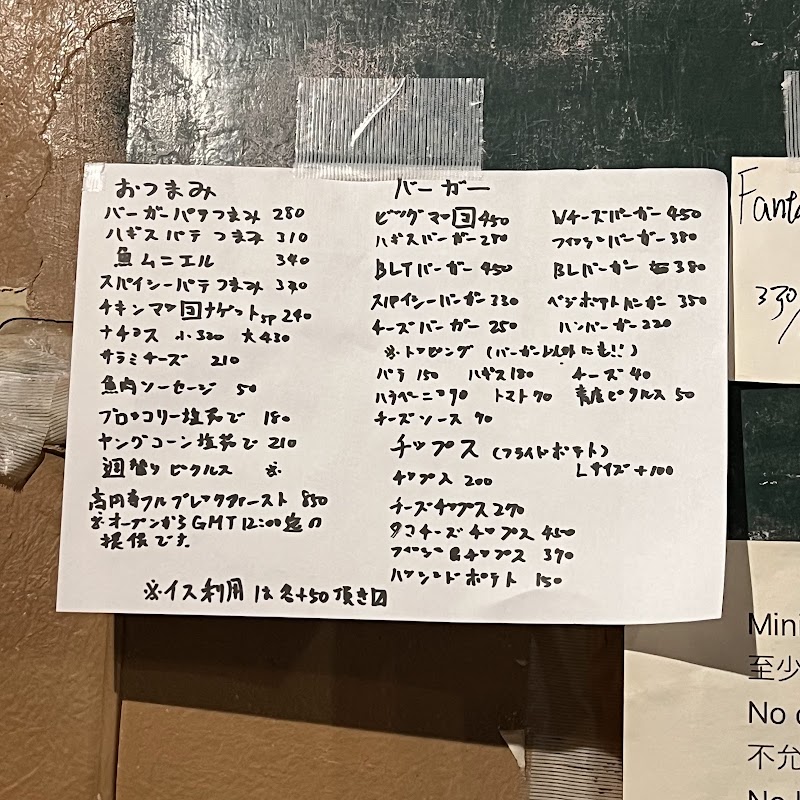 おつまみ
バーガーパテつまみ 280
ハギスパテつまみ 310
魚ムニエル 340
スパイシーパテつまみ 330
チキンマッ ヨ ナゲット5P 240
ナチョス 小320 大430
サラミチーズ 210
魚肉ソーセージ 50
ブロッコリー塩茹で 180
ヤングコーン塩茹で 210
週替りピクルス ※
高円寺フルブレックファースト 850
※オープンからGMT12:00迄の
提供です。
バーガー
ビッグマッ ヨ 450 Wチーズバーガー 450
ハギスバーガー 280 フィッシュバーガー 380
BLTバーガー 450 BLバーガー 380
スパイシーバーガー 330 ベジポテトバーガー 350
チーズバーガー 250 ハンバーガー 220
※トッピング (バーガー以外にも!!)
パテ 150 ハギス 180 チーズ 40
ハラペーニョ 90 トマト 70 ピクルス 50
チーズソース 90
チップス (フライドポテト)
チップス 200 Lサイズ+100
チーズチップス 270
タコチーズチップス 450
フィッシュ&チップス 390
ハッシュドポテト 150
※イス利用は 名+50頂き〼
Fanta
330/
Mini
至少
No
不允
No